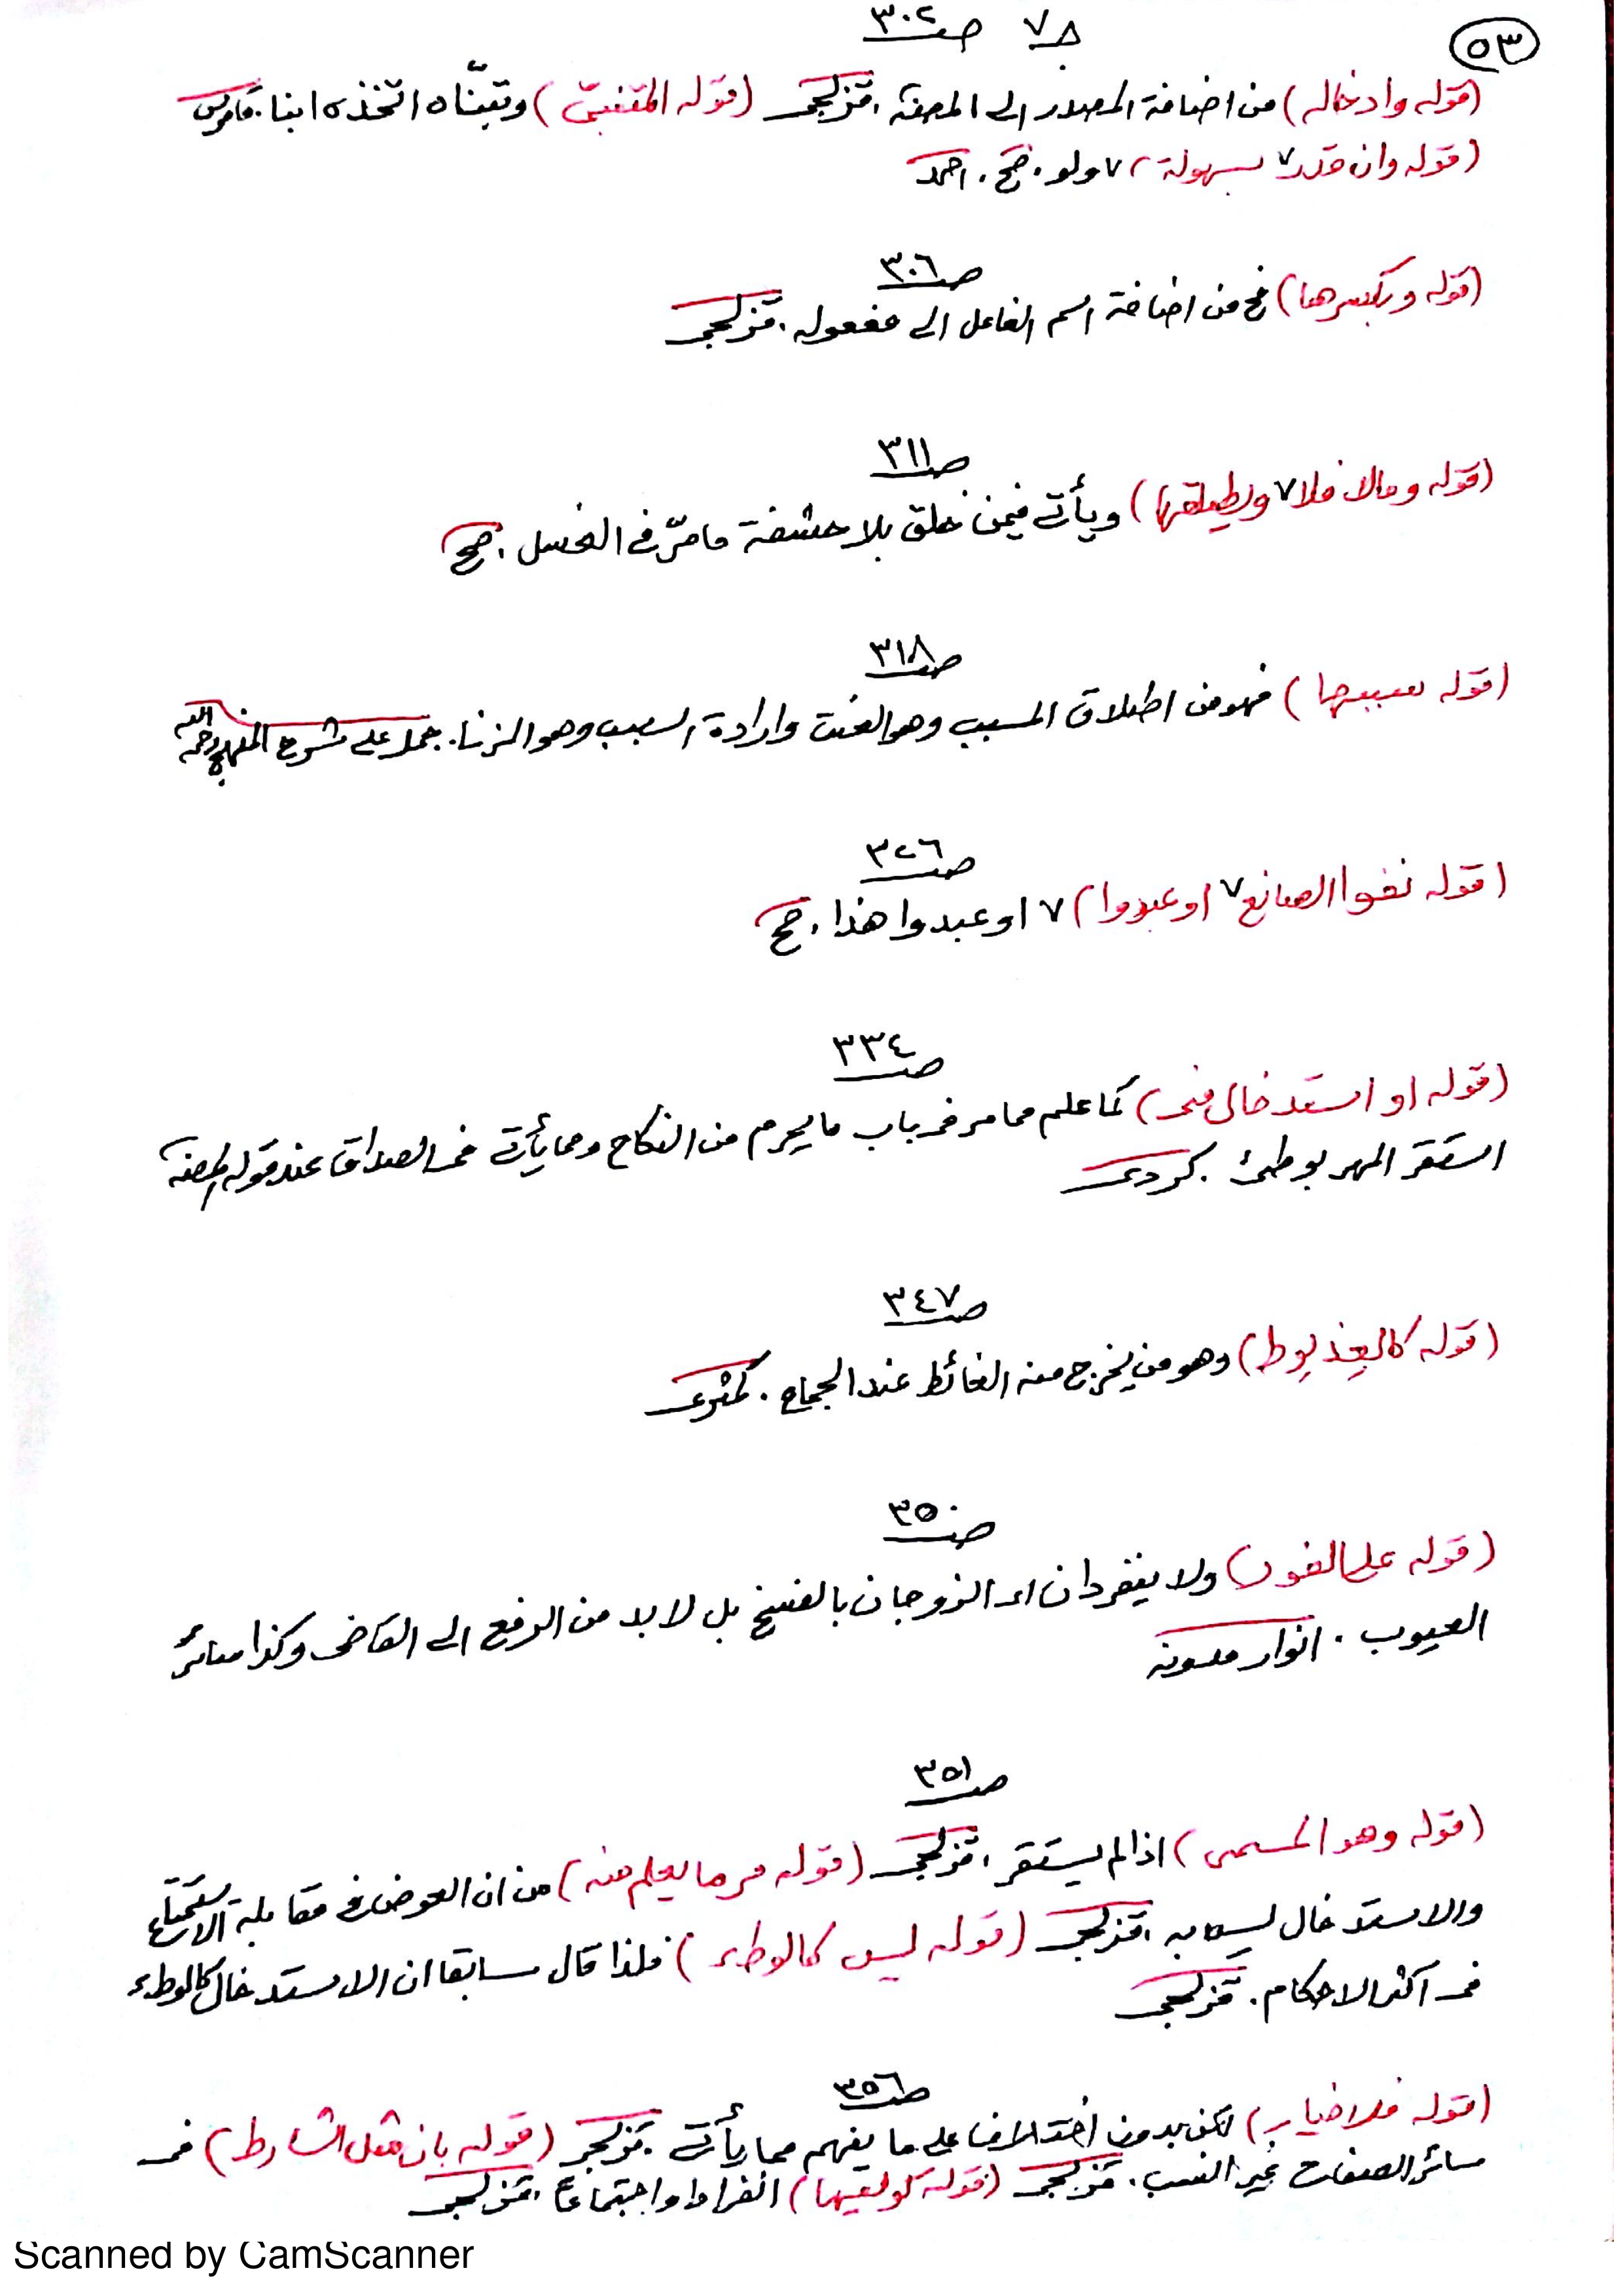 ٥٣
جـ٧ صـ٣٠٢
(قوله وادخاله) من اضافة المصدر الى الصفة. قزلجى (قوله المتبنى) وتبنّاه اتخذه ابنا. قاموس
(قوله وان قدر ٧ بسهولة) ٧ ولو. صح. احمد
صـ٣٠٦
(قوله وبكسرها) فح من اضافة اسم الفاعل الى مفعوله. قزلجى
صـ٣١١
(قوله ومالا فلا ٧ ويطيقها) ويأتى فيمن خلق بلا حشفة مامرّ فى الغسل. صح
صـ٣١٨
(قوله سببها) فهو من اطلاق المسبب وهو العنت وارادة السبب وهو الزنا. جمل على شرح المنهج رحمه الله
صـ٣٢٦
(قوله نفوا الصانع ٧ او عبدوا) ٧ او عبدوا هذا. صح
صـ٣٣٤
(قوله او استدخال منى) كما علم مما مر فى باب ما يحرم من النكاح ومما يأتى فى الصداق عند قوله المصنف
استقر المهر بوطئ. كردى
صـ٣٤٧
(قوله كالعِذيوط) وهو من يخرج منه الغائط عند الجماع. كمثرى
صـ٣٥٠
(قوله على الفور) ولا ينفردان اى الزوجان بالفسخ بل لابد من الرفع الى القاضى وكذا سائر
العيوب. انوار
صـ٣٥١
(قوله وهو المسمى) اذا لم يستقر. قزلجى (قوله مر ما يعلم منه) من ان العوض فى مقابلة الاستمتاع
والاستدخال ليس به. قزلجى (قوله ليس كالوطء) فلذا قال سابقا ان الاستدخال كالوطء
فى اكثر الاحكام. قزلجى
صـ٣٥٦
(قوله فلا خيار) لكن بد من اختلاف على ما يفهم مما يأتى. قزلجى (قوله بان مثل الشارط) فى
سائر الصفات غير النسب. قزلجى (قوله كوليها) انفرادا واجتماعا. قزلجى
Scanned by CamScanner